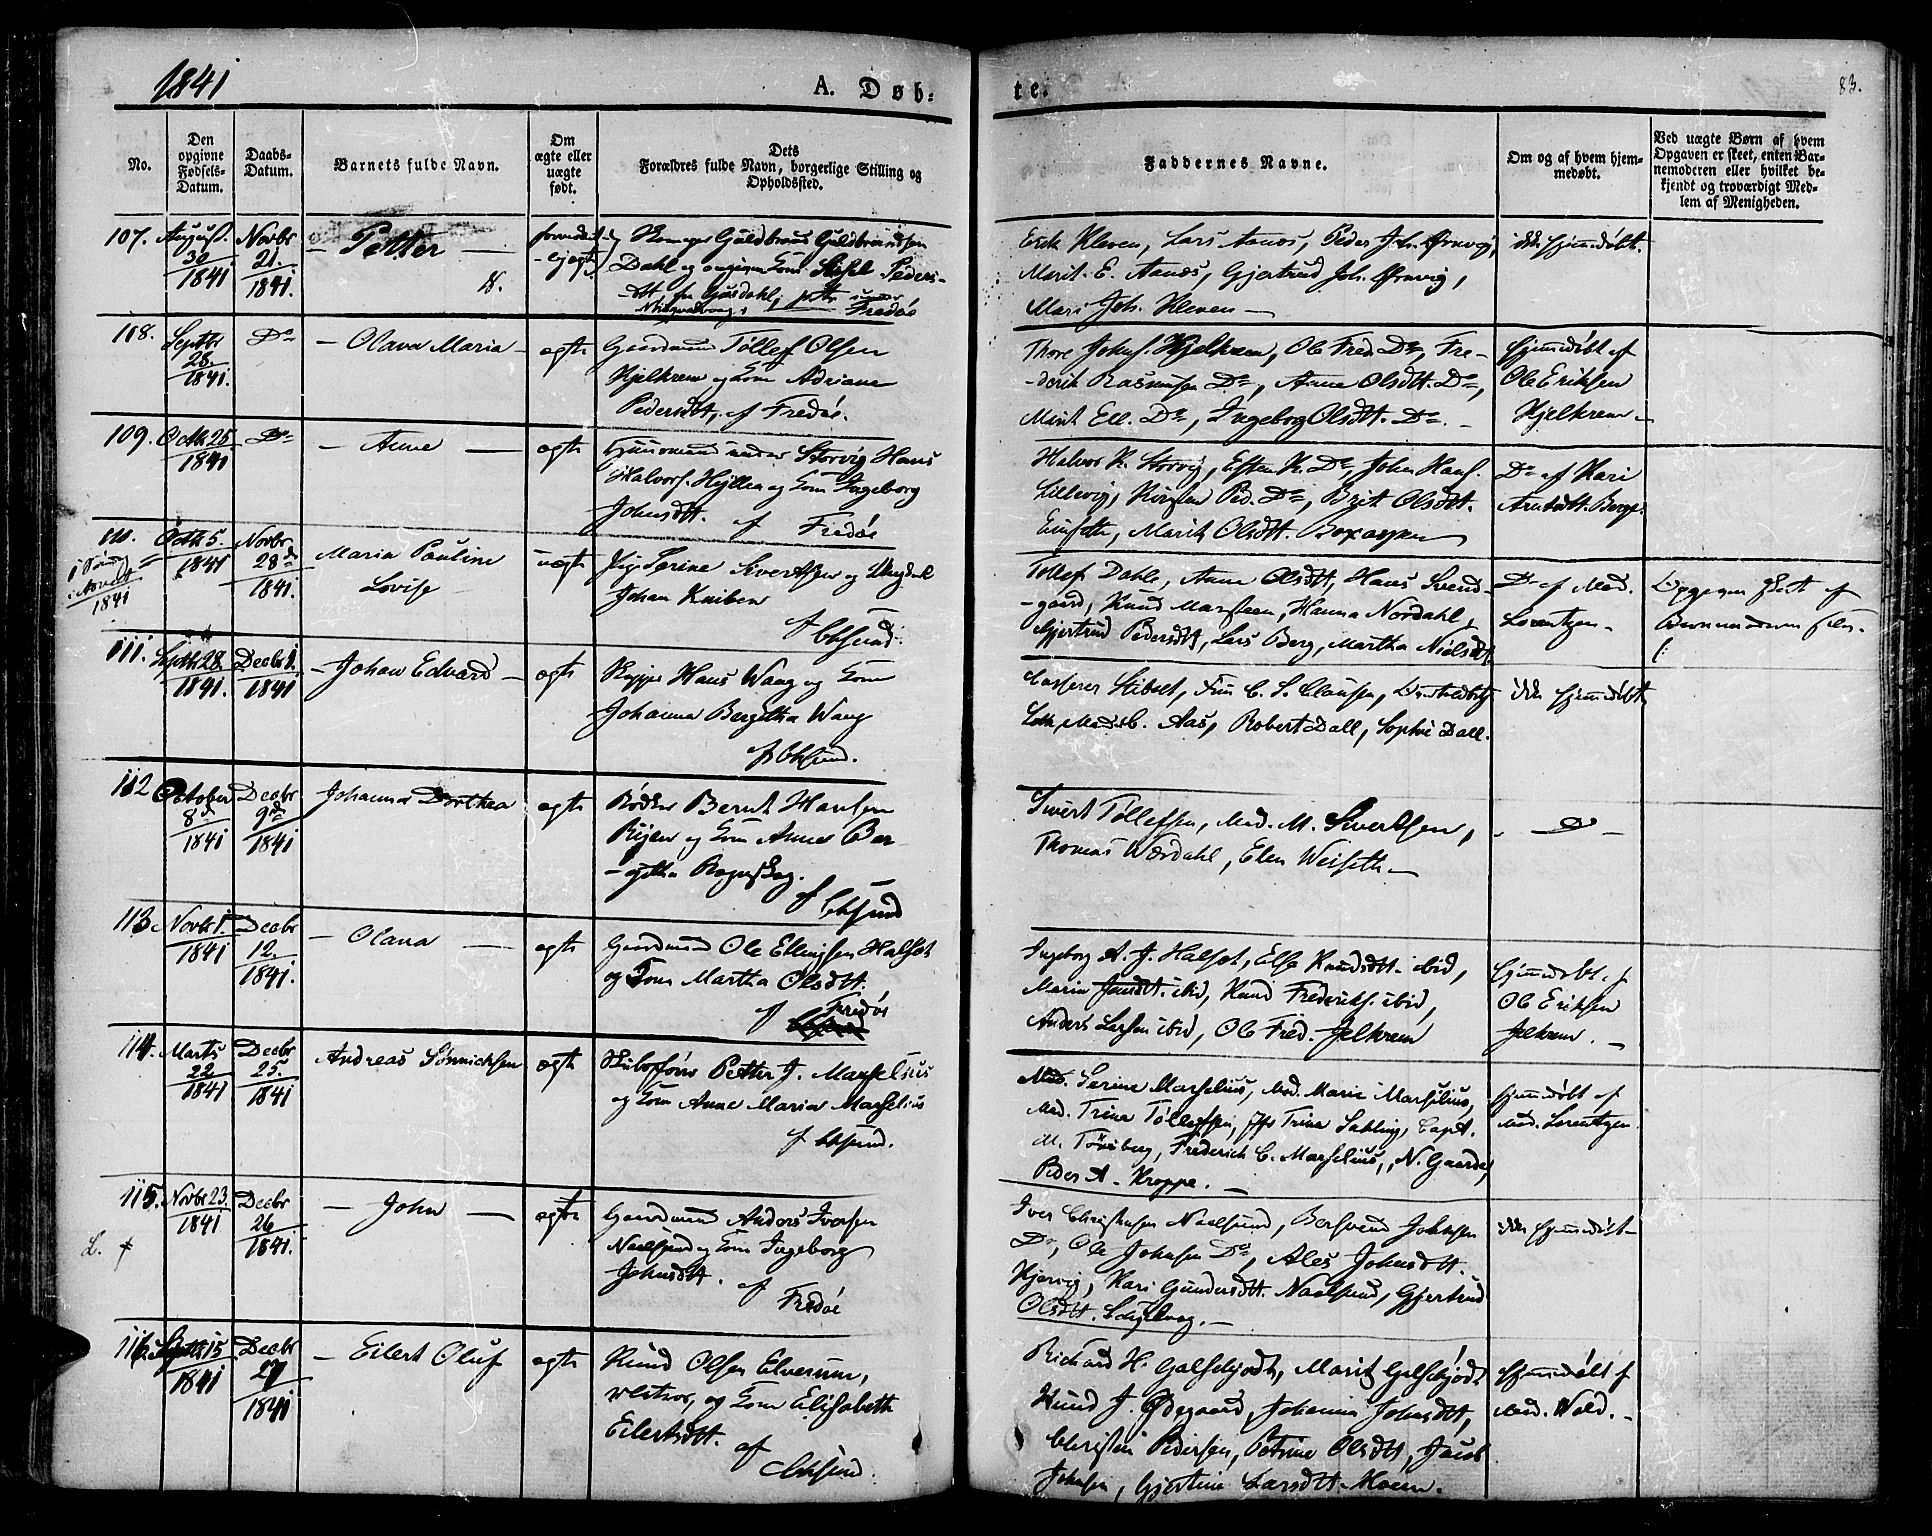 1841
A. Døb=
te.
83.
No.
Den opgivne Fødsels-Datum.
Daabs-Datum.
Barnets fulde Navn.
Om ægte eller uægte født.
Dets Forældres fulde Navn, borgerlige Stilling og Opholdssted.
Faddernes Navne.
Om og af hvem hjemmedøbt.
Ved uægte Børn af hvem Opgaven er skeet, enten Barnemoderen eller hvilket bekjendt og troværdigt Medlem af Menigheden.
107. August 30 1841
Novbr 21. 1841.
Petter
Guldbrand Guldbrandsen
Dahl og Sissel Peders-
-dtt
Fredøe
Erik Kleven, Lars Aanes, Peder Joh. Ørnvig,
Marit E. Aanes, Gjertrud Joh. Ørnvig,
Mari Joh. Kleven
ikke hjemmedøbt.
108. Septbr 28. 1841.
Do
Olava Maria
ægte
Gaardmand Tøllef Olsen
Hjelkrem og Kone Adriane
Pedersdtt, af Fredøe.
Thore Johns. Hjelkrem, Ole Fred. Do, Fre-
-derik Rasmussen Do, Anne Olsdtt. Do,
Marit Ell. Do, Ingeborg Olsdtt. Do
hjemmedøbt af
Ole Eriksen
Hjelkrem
109. Octbr 25 1841
Do
Anne
ægte
Huusmand under Storvig Hans
Halvors. og Kone Ingeborg
Johnsdtt. af Fredøe
Halvor K. Storvig, Esten K. Do, John Hans.
Lillevig, Kirsten Ped. Do, Brit Olsdtt.
Marit Olsdtt.
Do af Kari
Arntsdtt. Berge.
110. Octbr 5. 1841
Novbr. 28de 1841.
Maria Pauline
Lovise
uægte
Pige Serine Sivertsen og Ungkal
Johan Kniben
af Chrsund
Tøllef Dahle, Anne Olsdtt, Hans Svend-
-gaard, Knud Marsteen, Hanna Nordahl,
Gjertrud Pedersdtt, Lars Berg, Martha Nielsdtt
Do af Mad.
Lorentzen
Opgaven skeet af
Barnemoderen
111. Septbr 28 1841.
Decbr 1. 1841
Johan Edvard
ægte
Hans Waag og Kone
Johanna Bergitha Waag
af Chrsund.
Casserer Stibolt, C. S. Clausen,
Mads C. Aas, Robert Dall, Sophie Dall.
ikke hjemmedøbt
112 October 8de 1841
Decbr 9de 1841
Johanna Dorthea
ægte
Bødker Bernt Hansen
og Kone Anne Ber-
-githa
af Chrsund
Sivert Tøllefsen, Mad. M. Sivertsen,
Thomas Værdahl, Elen Weiseth
Do
113. Novbr 1. 1841
Decbr 12. 1841.
Olava
ægte
Gaardmand Ole Ellingsen Halset
og Kone Martha Olsdtt.
af Fredøe
Ingeborg A. J. Halset, Else Knudsdtt. ibid,
Maria Jansdtt. ibid, Knud Frederiks. ibid,
Anders Larsen ibid, Ole Fred. Jelkrem
hjemmedøbt af
Ole Eriksen
Jelkrem.
114. Marts 22 1841
Decbr 25. 1841
Andreas Sønnichsen
ægte
Skibsfører Petter J. Marselius
og Kone Anne Maria Marselius
af Chrsund.
Mad. Serine Marselius, Mad. Marie Marselius,
Mad. Trine Tøllefsen, Jfr Trine Sahling, Capt.
M. Tønsberg, Frederich C. Marselius, N. Gaarde,
Peder A. Kroppe.
hjemmedøbt af
Mad. Lorentzen.
115. Novbr 23. 1841
Decbr 26 1841.
L.
John
ægte
Gaardmand Anders Iversen
Naalsund og Kone Ingeborg
Johnsdtt. af
Fredøe
Iver Christensen Naalsund, Bersvend Johnsen
Do, Ole Johnsen Do, Ales Johnsdtt.
Gundersdtt. Naalsund, Gjertrud
Olsdtt.
ikke hjemmedøbt
116. Septbr 15 1841
Decbr 27 1841
Eilert Oluf
ægte
Knud Olsen Elverum,
og Kone Elisabeth
Eilertsdtt. af
Chrsund.
Richard H. Galsebjødt, Marit Galsebjødt
Knud J. Ødegaard, Johanna Johnsdtt,
Christen Pedersen, Petrine Olsdtt, Jacob
Johnsen, Gjertine Larsdtt Moen.
hjemmedøbt af
Mad. Wold.